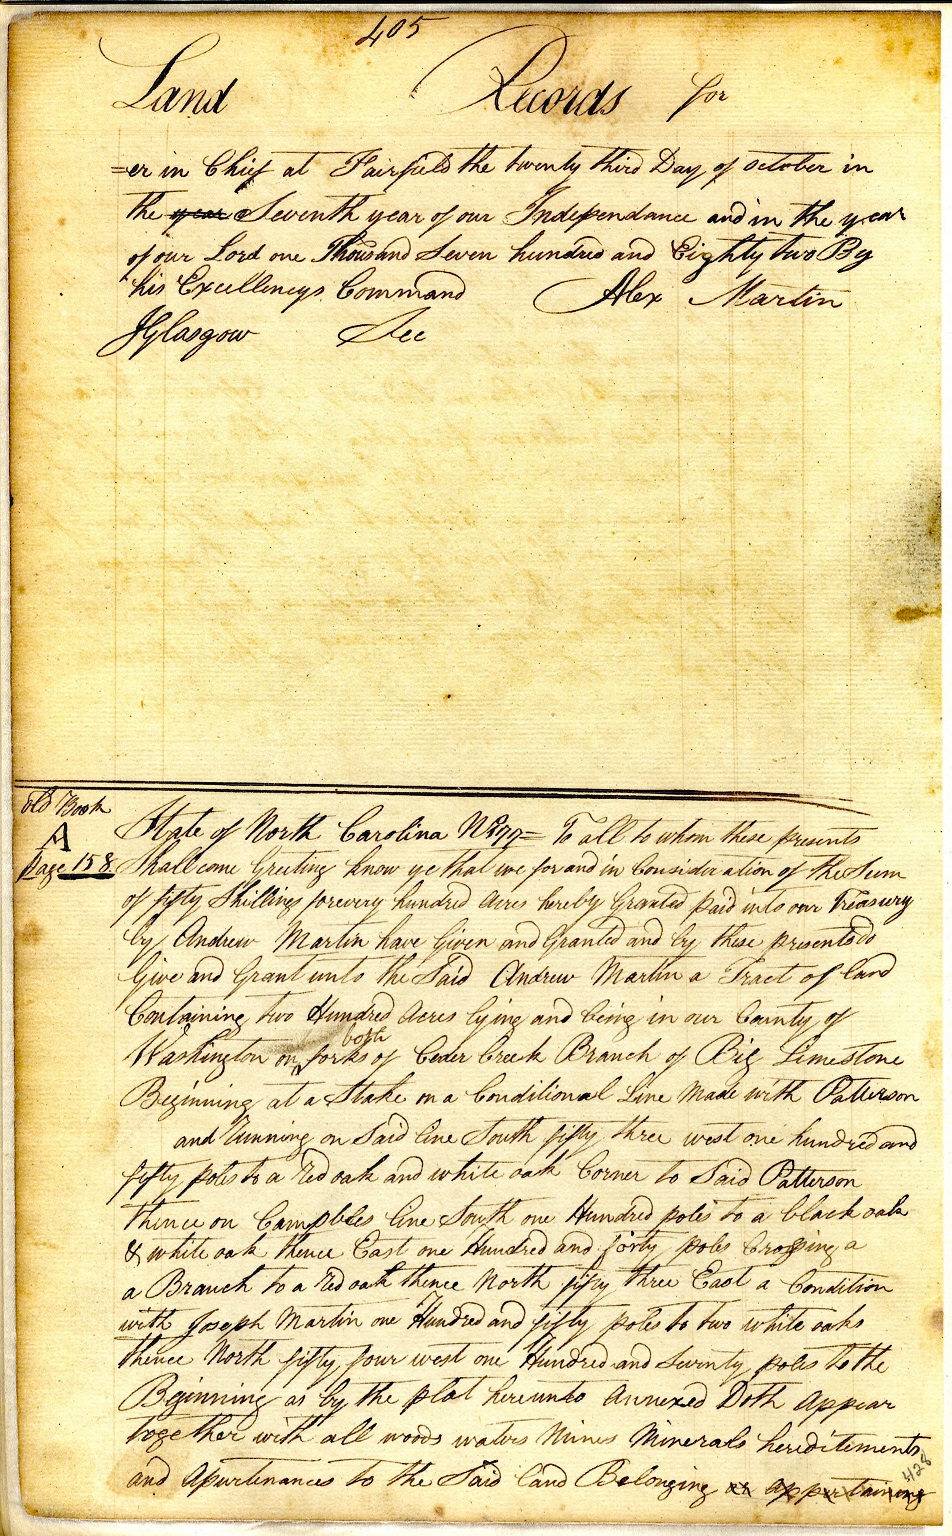 405
Land Records for
=er in Chief at Fairfield the twenty third Day of october in
the year Seventh year of our Independance and in the year
of our Lord one Thousand Seven hundred and Eighty two By
his Excellencys Command Alex Martin
JGlasgow Sec
old Book
A
Page 158
State of North Carolina No 99= To all to whom these presents
Shall come Greeting know ye that we for and in Consideration of the Sum
of fifty Shillings for every hundred acres hereby Granted paid into our Treasury
by Andrew Martin have Given and Granted and by these presents do
Give and Grant unto the Said Andrew Martin a Tract of land
Containing two Hundred acres lying and being in our County of
both
Washington on forks of Ceder Creek Branch of Big Limestone
Beginning at a Stake on a Conditional Line Made with Patterson
and Running on Said line South fifty three west one hundred and
fifty poles to a Red oak and white oak Corner to Said Patterson
thence on Campbles line South one Hundred poles to a black oak
& white oak thence East one Hundred and forty poles Crossing a
a Branch to a Red oak thence North fifty three East a Condition
with Joseph Martin one Hundred and fifty poles to two white oaks
thence North fifty four west one Hundred and Seventy poles to the
Beginning as by the plat hereunto annexed Doth appear
together with all woods waters Mines Minerals hereditements
and Apurtenances to the Said land Belonging or appertaining
428